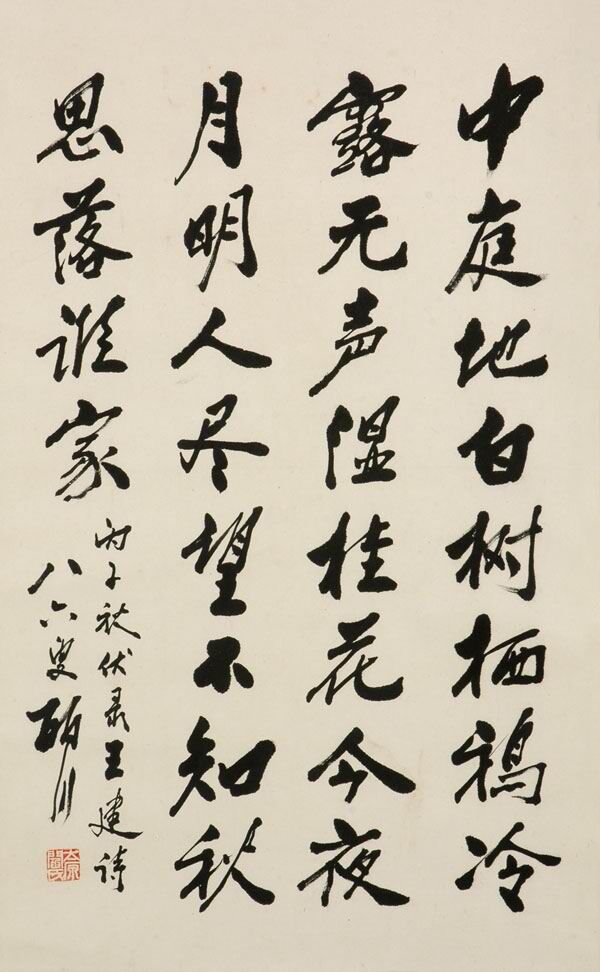 中庭地白树栖鸦冷
露无声湿桂花今夜
月明人尽望不知秋
思落谁家
丙子秋伏录王建诗
八六叟颐川